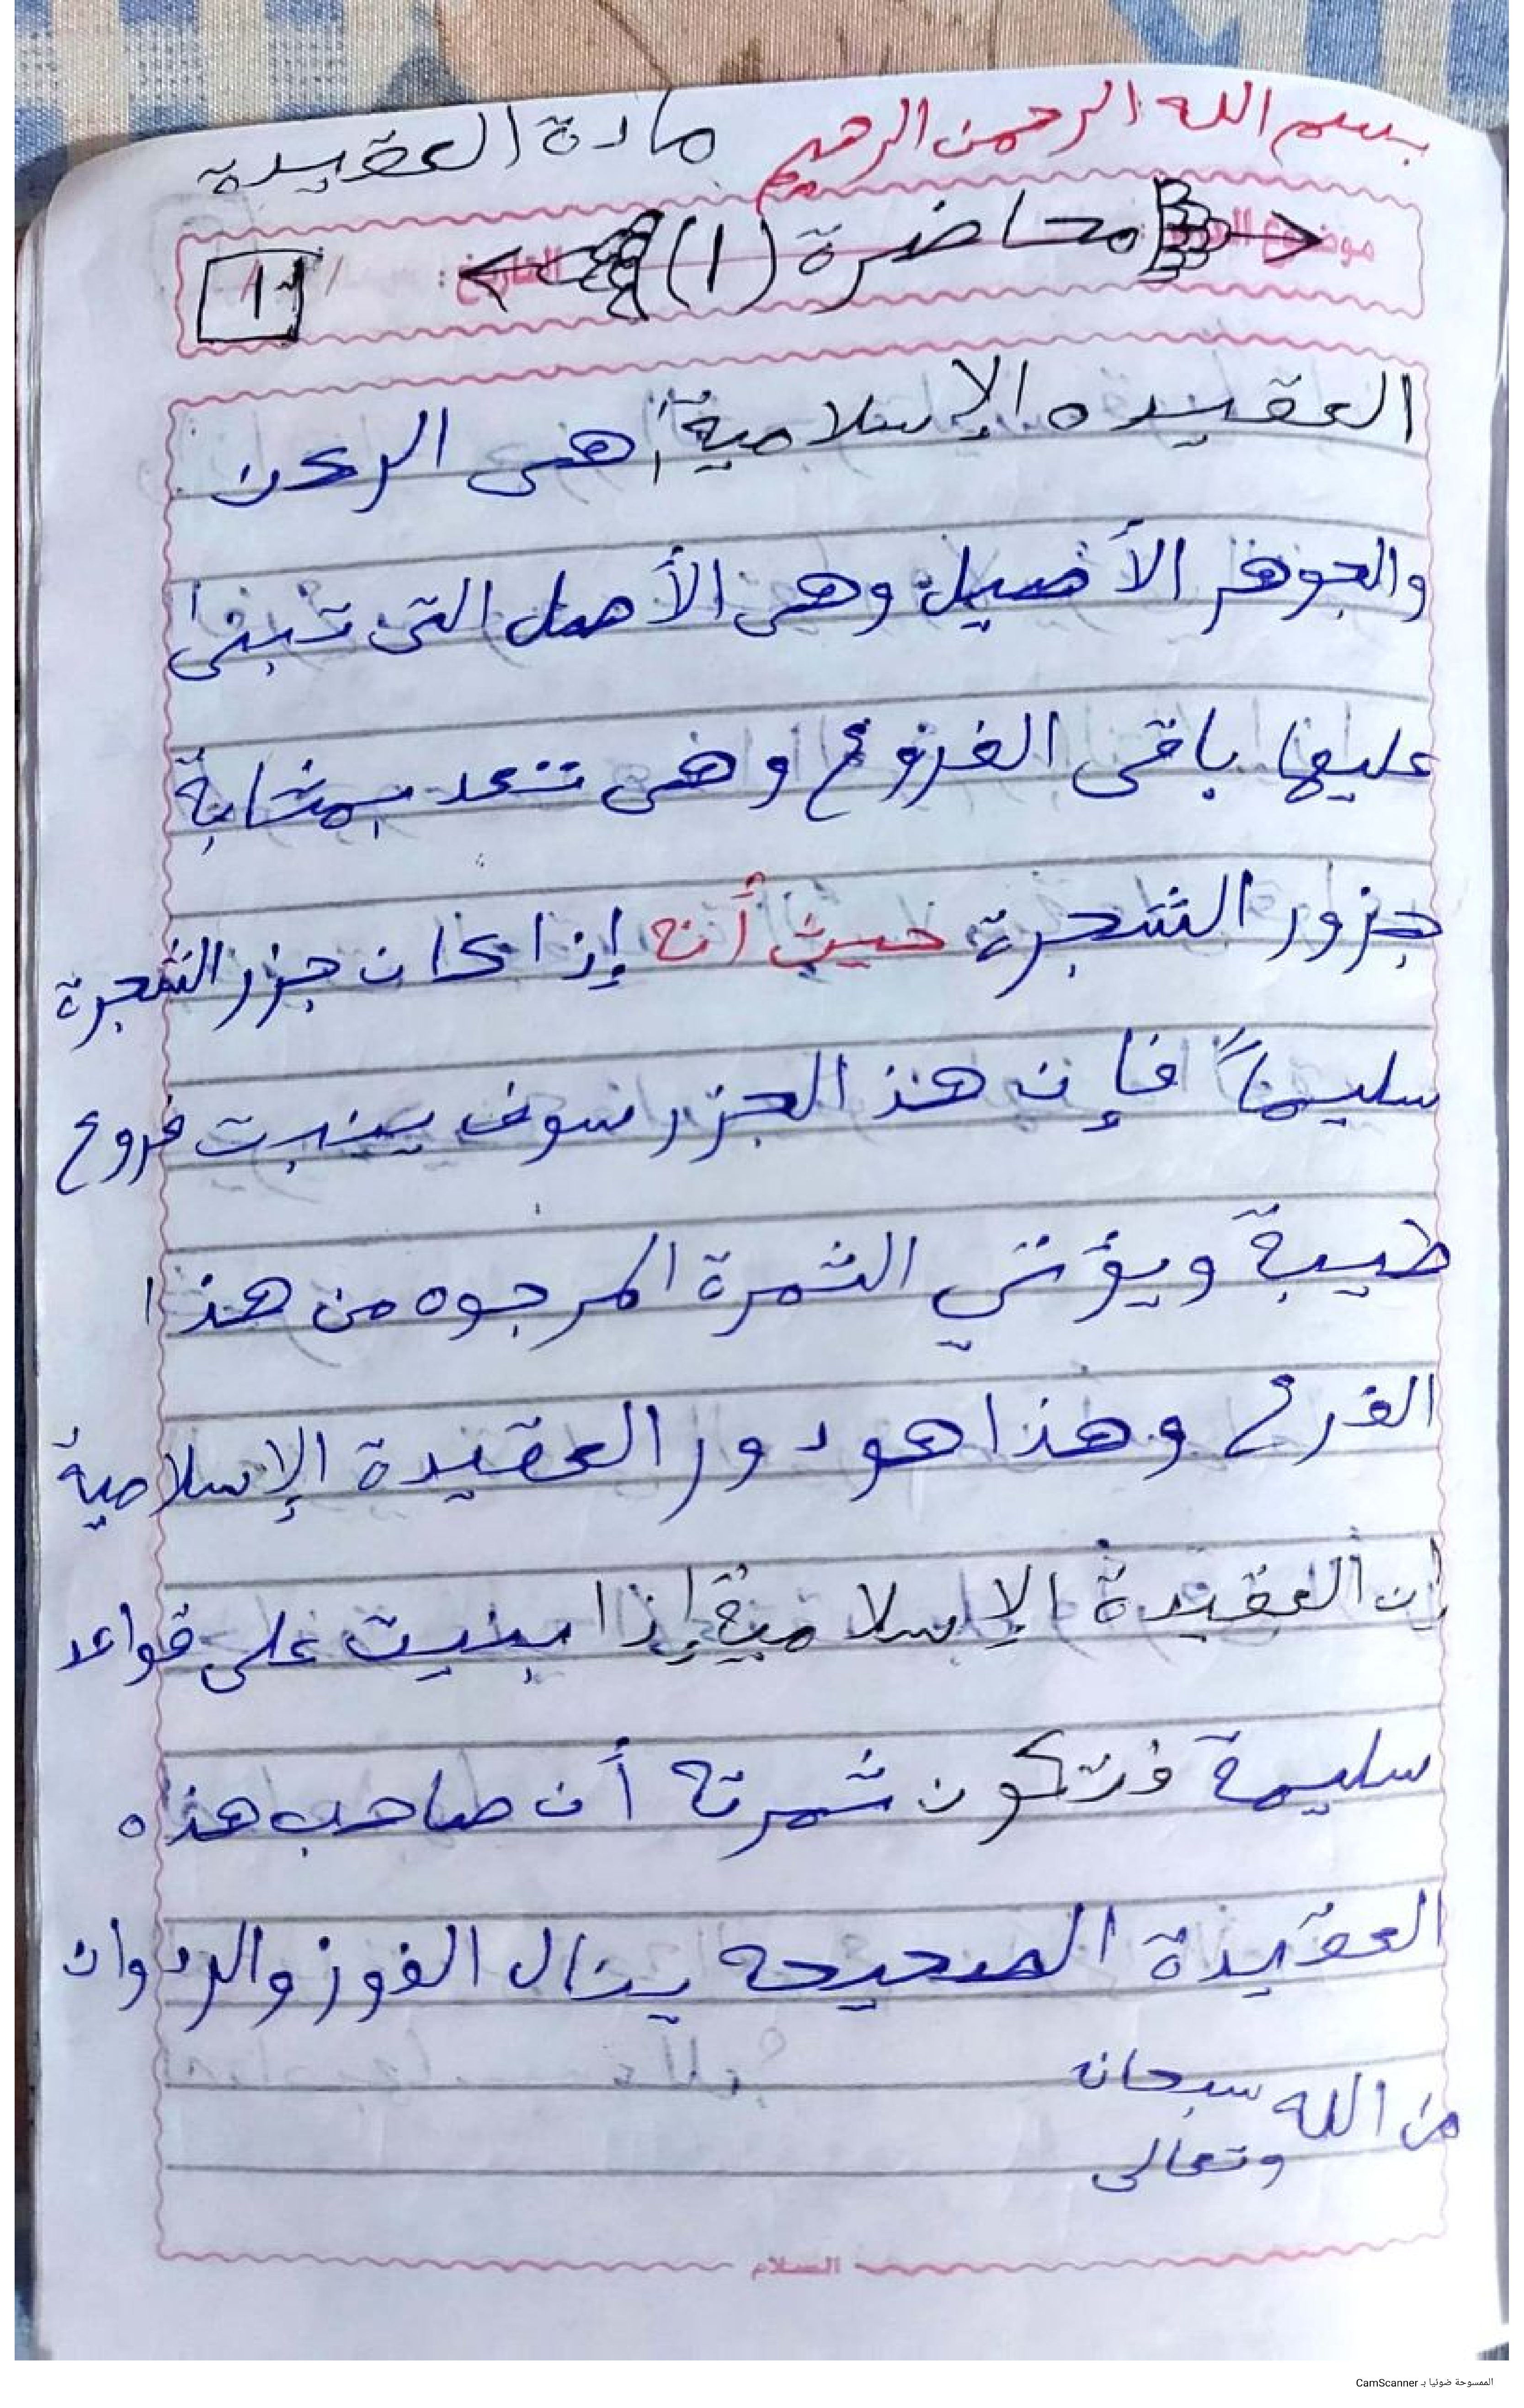 بسم الله الرحمن الرحيم مادة العقيدة
محاضرة (1)
1
العقيده الإسلامية: هى الركن
والجوهر الأصيل وهى الأصل التى تبنى
عليها باقى الفروع وهى تعد بمثابة
جزور الشجرة حيث أنه إذا كان جزر الشجرة
سليماً فإن هذ الجزر سوف ينبت فروع
طيبة ويؤتي الثمرة المرجوه من هذا
الفرع وهذا هو دور العقيدة الإسلامية
إن العقيدة الإسلامية إذا بنيت على قواعد
سليمة فتكون ثمرتة أن صاحب هذه
العقيدة الصحيحه ينال الفوز
من الله سبحانه
وتعالى
السلام
الممسوحة ضوئيا بـ CamScanner